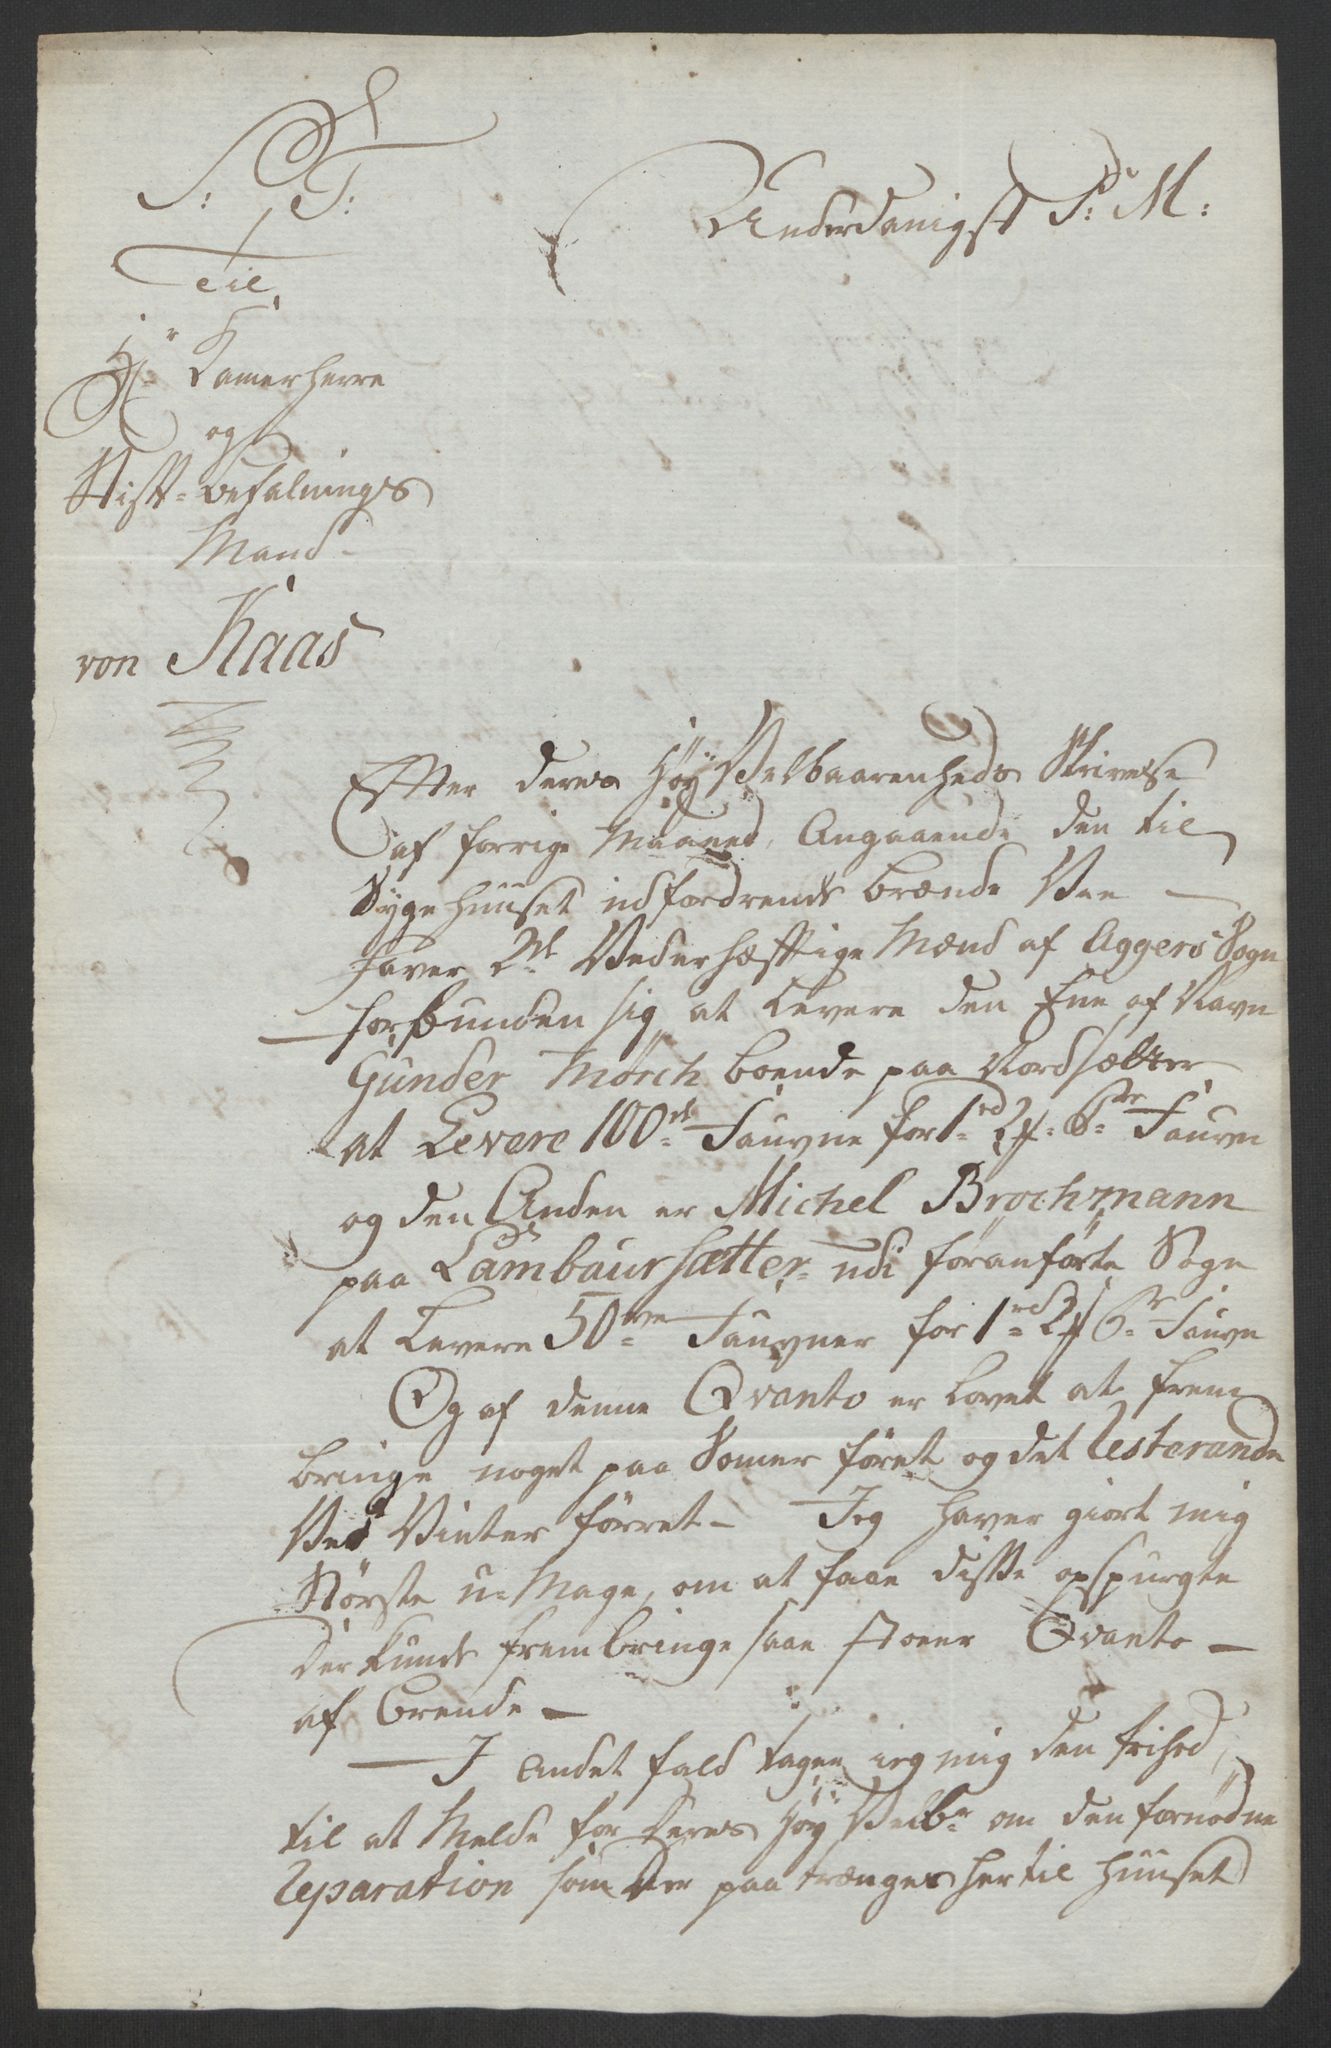 S: T:
Til
Hr Kamerherre
og
Stift-befalnings
Mand
von Kaas
Underdanigst P: M:
Effter deres Høy Velbaarenheds Skrivelse
af forrige Maaned, Angaaende den til
Sygehuuset udfordrende brænde Vee —
haver 2de Vederhæfftige Mænd af Aggers Sogn
forbunden sig at Levere den Ene af Navn
Gunder Mørch boende paa Nordsætter
at Levere 100de Fauvne for 1rd 2ß pr Fauvn
og den Anden er Michel Brochmann
paa Lambaursætter udi foranførte Sogn
at Levere 50tve Fauvner for 1rd 2ß pr Fauvn
Og af denne Qvanto er lovet at frem
bringe noget paa Somer føret og det Resterande
Ved Vinter førret – Jeg haver giort mig
Største u-Mage, om at faae disse opspurgte
der kunde frembringe saae stoer Qvanto —
af brende —
— I andet fald tager ieg mig den frihed,
til at Melde for Deres Høy Velbr om den fornødne
Reparation som der paa trænges her til Huuset